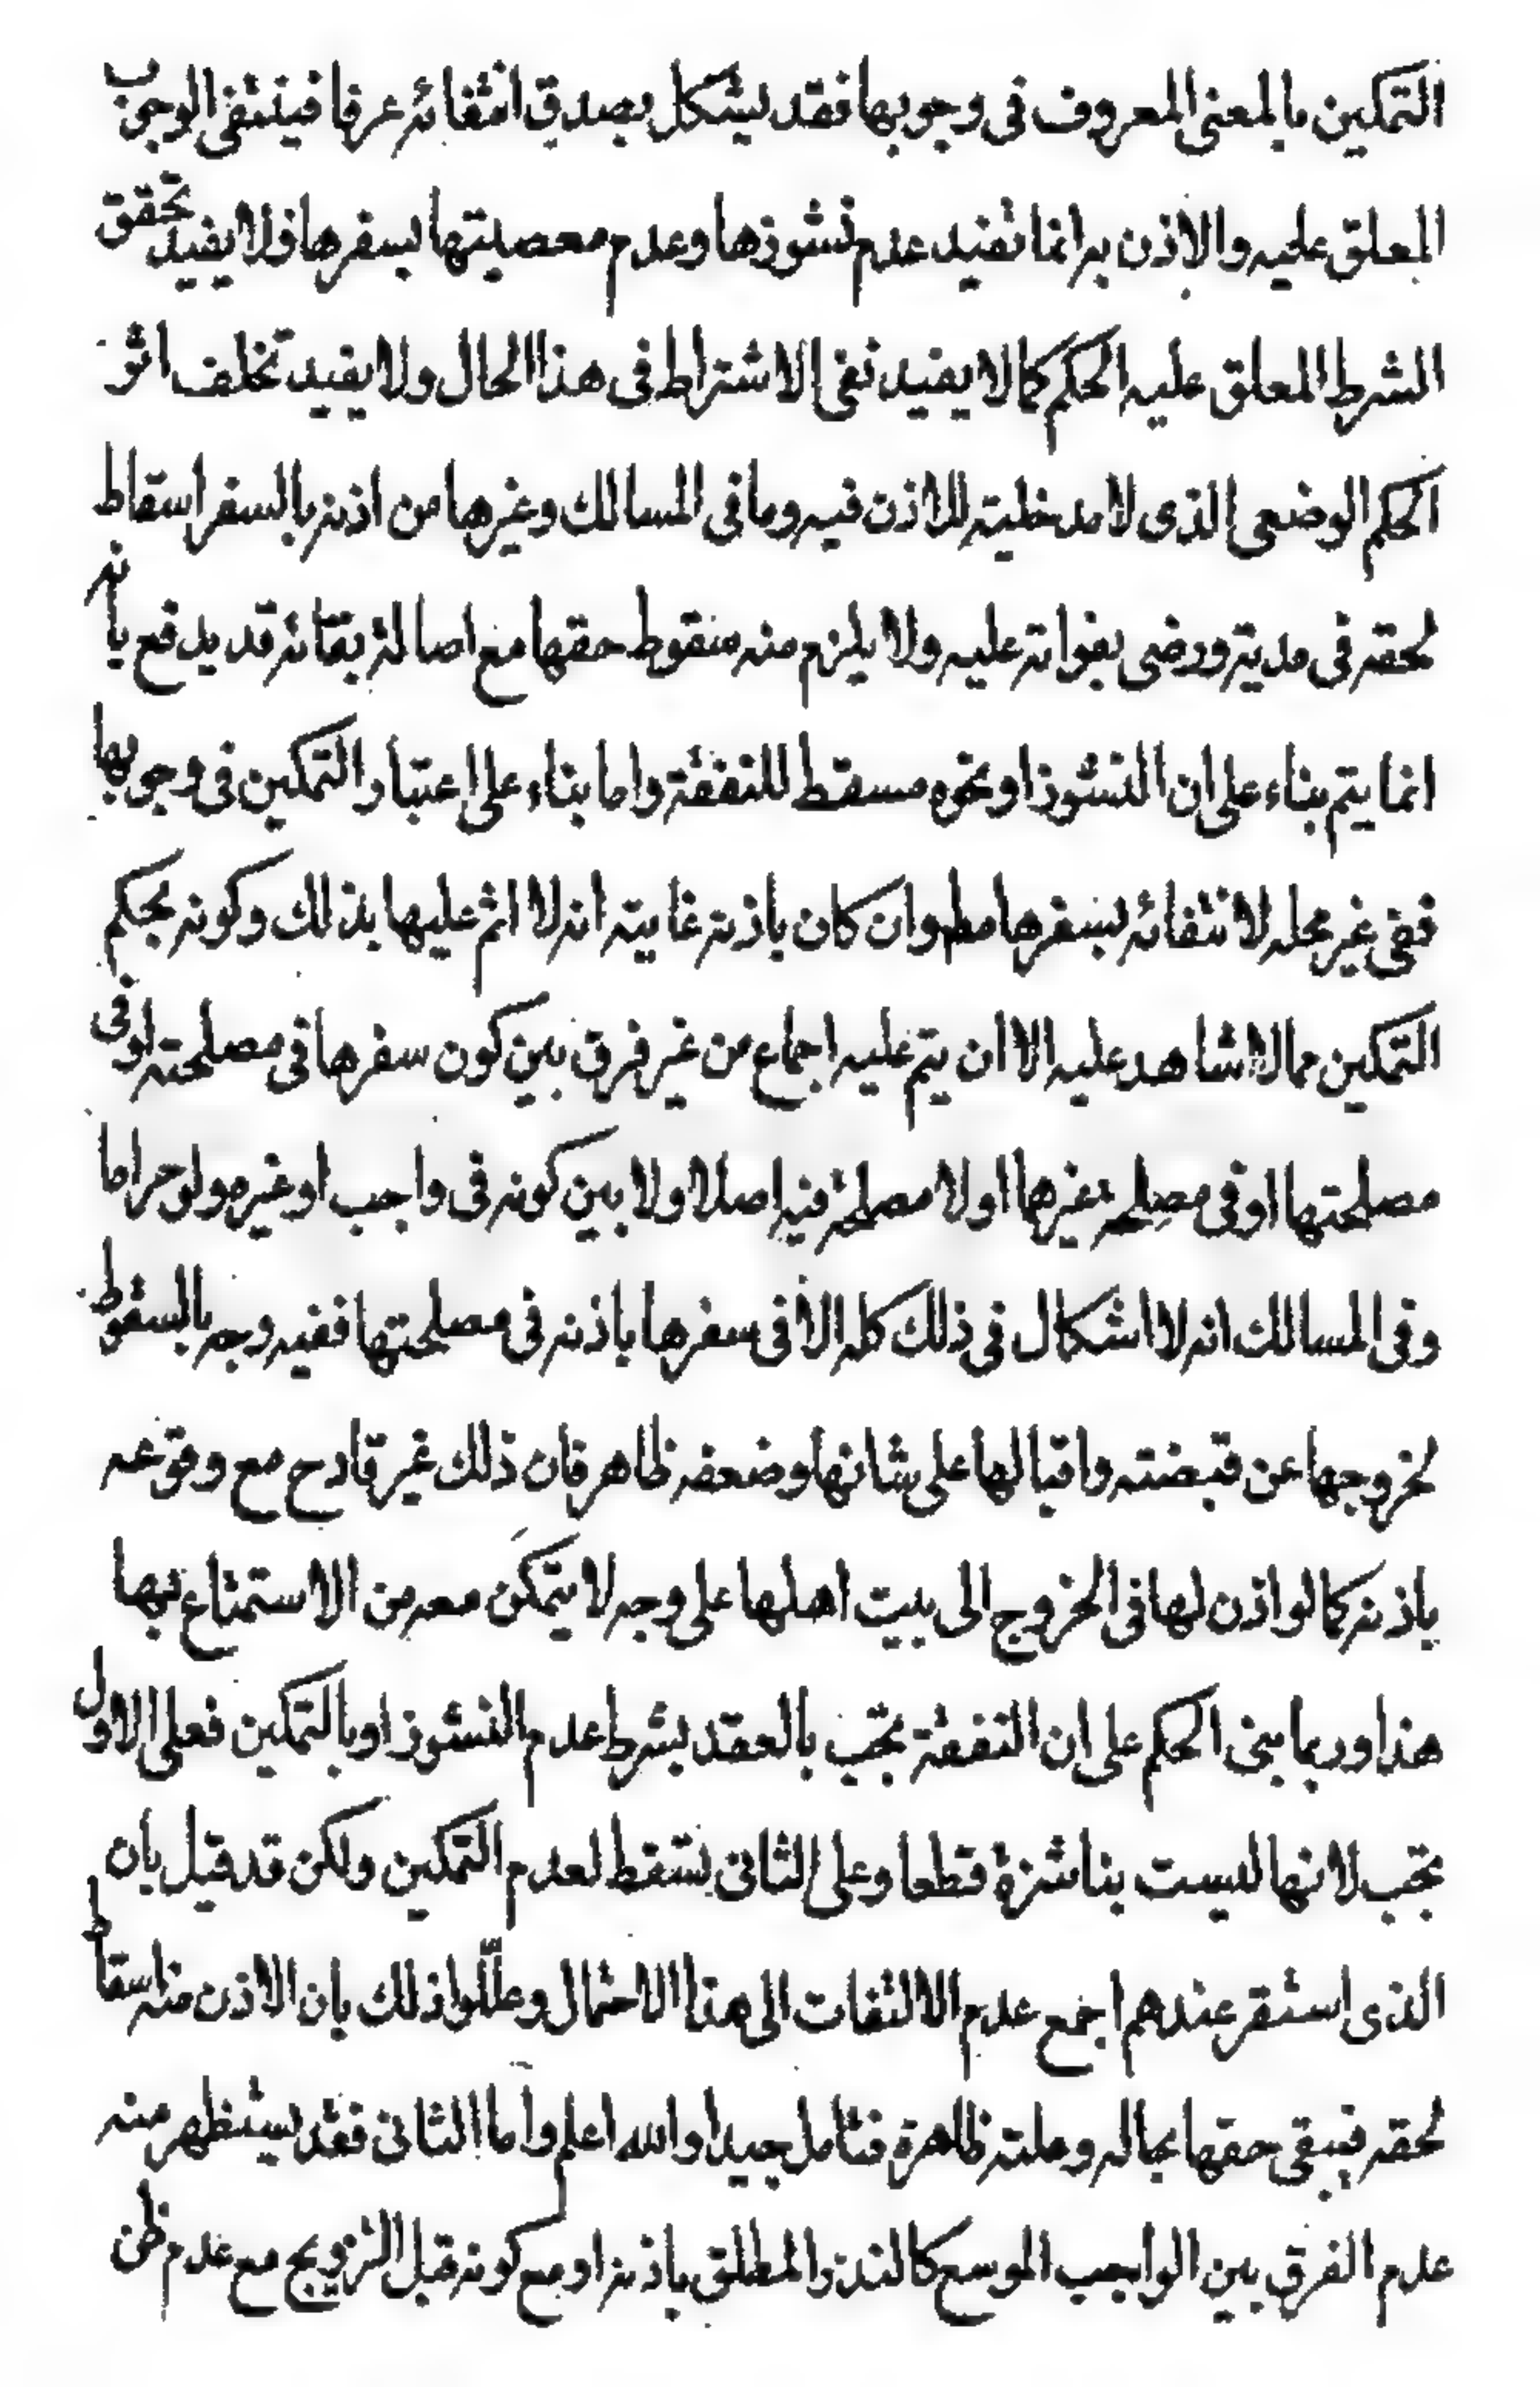 التمكين بالمعنى المعروف فى وجوبها فقد يشكل بصدق انتفائه عرفا فينتفى الوجوب
المعلق عليه والاذن به انما تفيد عدم نشوزها وعدم معصيتها بسفرها فلا يفيد تحقق
الشرط المعلق عليه الحكم كما لا يفيد نفى الاشتراط فى هذا الحال ولا يفيد تخلف اثر
الحكم الوضعى الذى لا مدخلية للاذن فيه وما فى المسالك وغيرها من اذنه بالسفر اسقاط
لحقه فى مدته ورضى بفواته عليه ولا يلزم منه سقوط حقها مع اصالة بقائه قد يدفع بانه
انما يتم بناء على ان النشوز او نحوه مسقط للنفقة واما بناء على اعتبار التمكين فى وجوبها
ففى غير محله لانتفائه بسفرها مط وان كان باذنه غايته انه لا اثم عليها بذلك وكونه بحكم
التمكين مما لا شاهد عليه الا ان يتم عليه اجماع من غير فرق بين كون سفرها فى مصلحته او فى
مصلحتها او فى مصلحة غيرها او لا مصلحة فيه اصلا ولا بين كونه فى واجب او غيره ولو حراما
وفى المسالك انه لا اشكال فى ذلك كله الا فى سفرها باذنه فى مصلحتها ففيه وجه بالسقوط
لخروجها عن قبضته واقبالها على شانها وضعفه ظاهر فان ذلك غير قادح مع وقوعه
باذنه كما لو اذن لها فى الخروج الى بيت اهلها على وجه لا يتمكن معه من الاستمتاع بها
هذا وربما بنى الحكم على ان النفقة تجب بالعقد بشرط عدم النشوز او بالتمكين فعلى الاول
تجب لانها ليست بناشزة قطعا وعلى الثانى تسقط لعدم التمكين ولكن قد قيل بان
الذى استقر عندهم اجمع عدم الالتفات الى هذا الاحتمال وعلّلوا ذلك بان الاذن منه اسقاط
لحقه فيبقى حقها بحاله وعلته ظاهرة فتامل جيدا والله اعلم واما الثانى فقد يستظهر منه
عدم الفرق بين الواجب الموسع كالنذر المطلق باذنه او مع كونه قبل التزويج مع عدم ظن